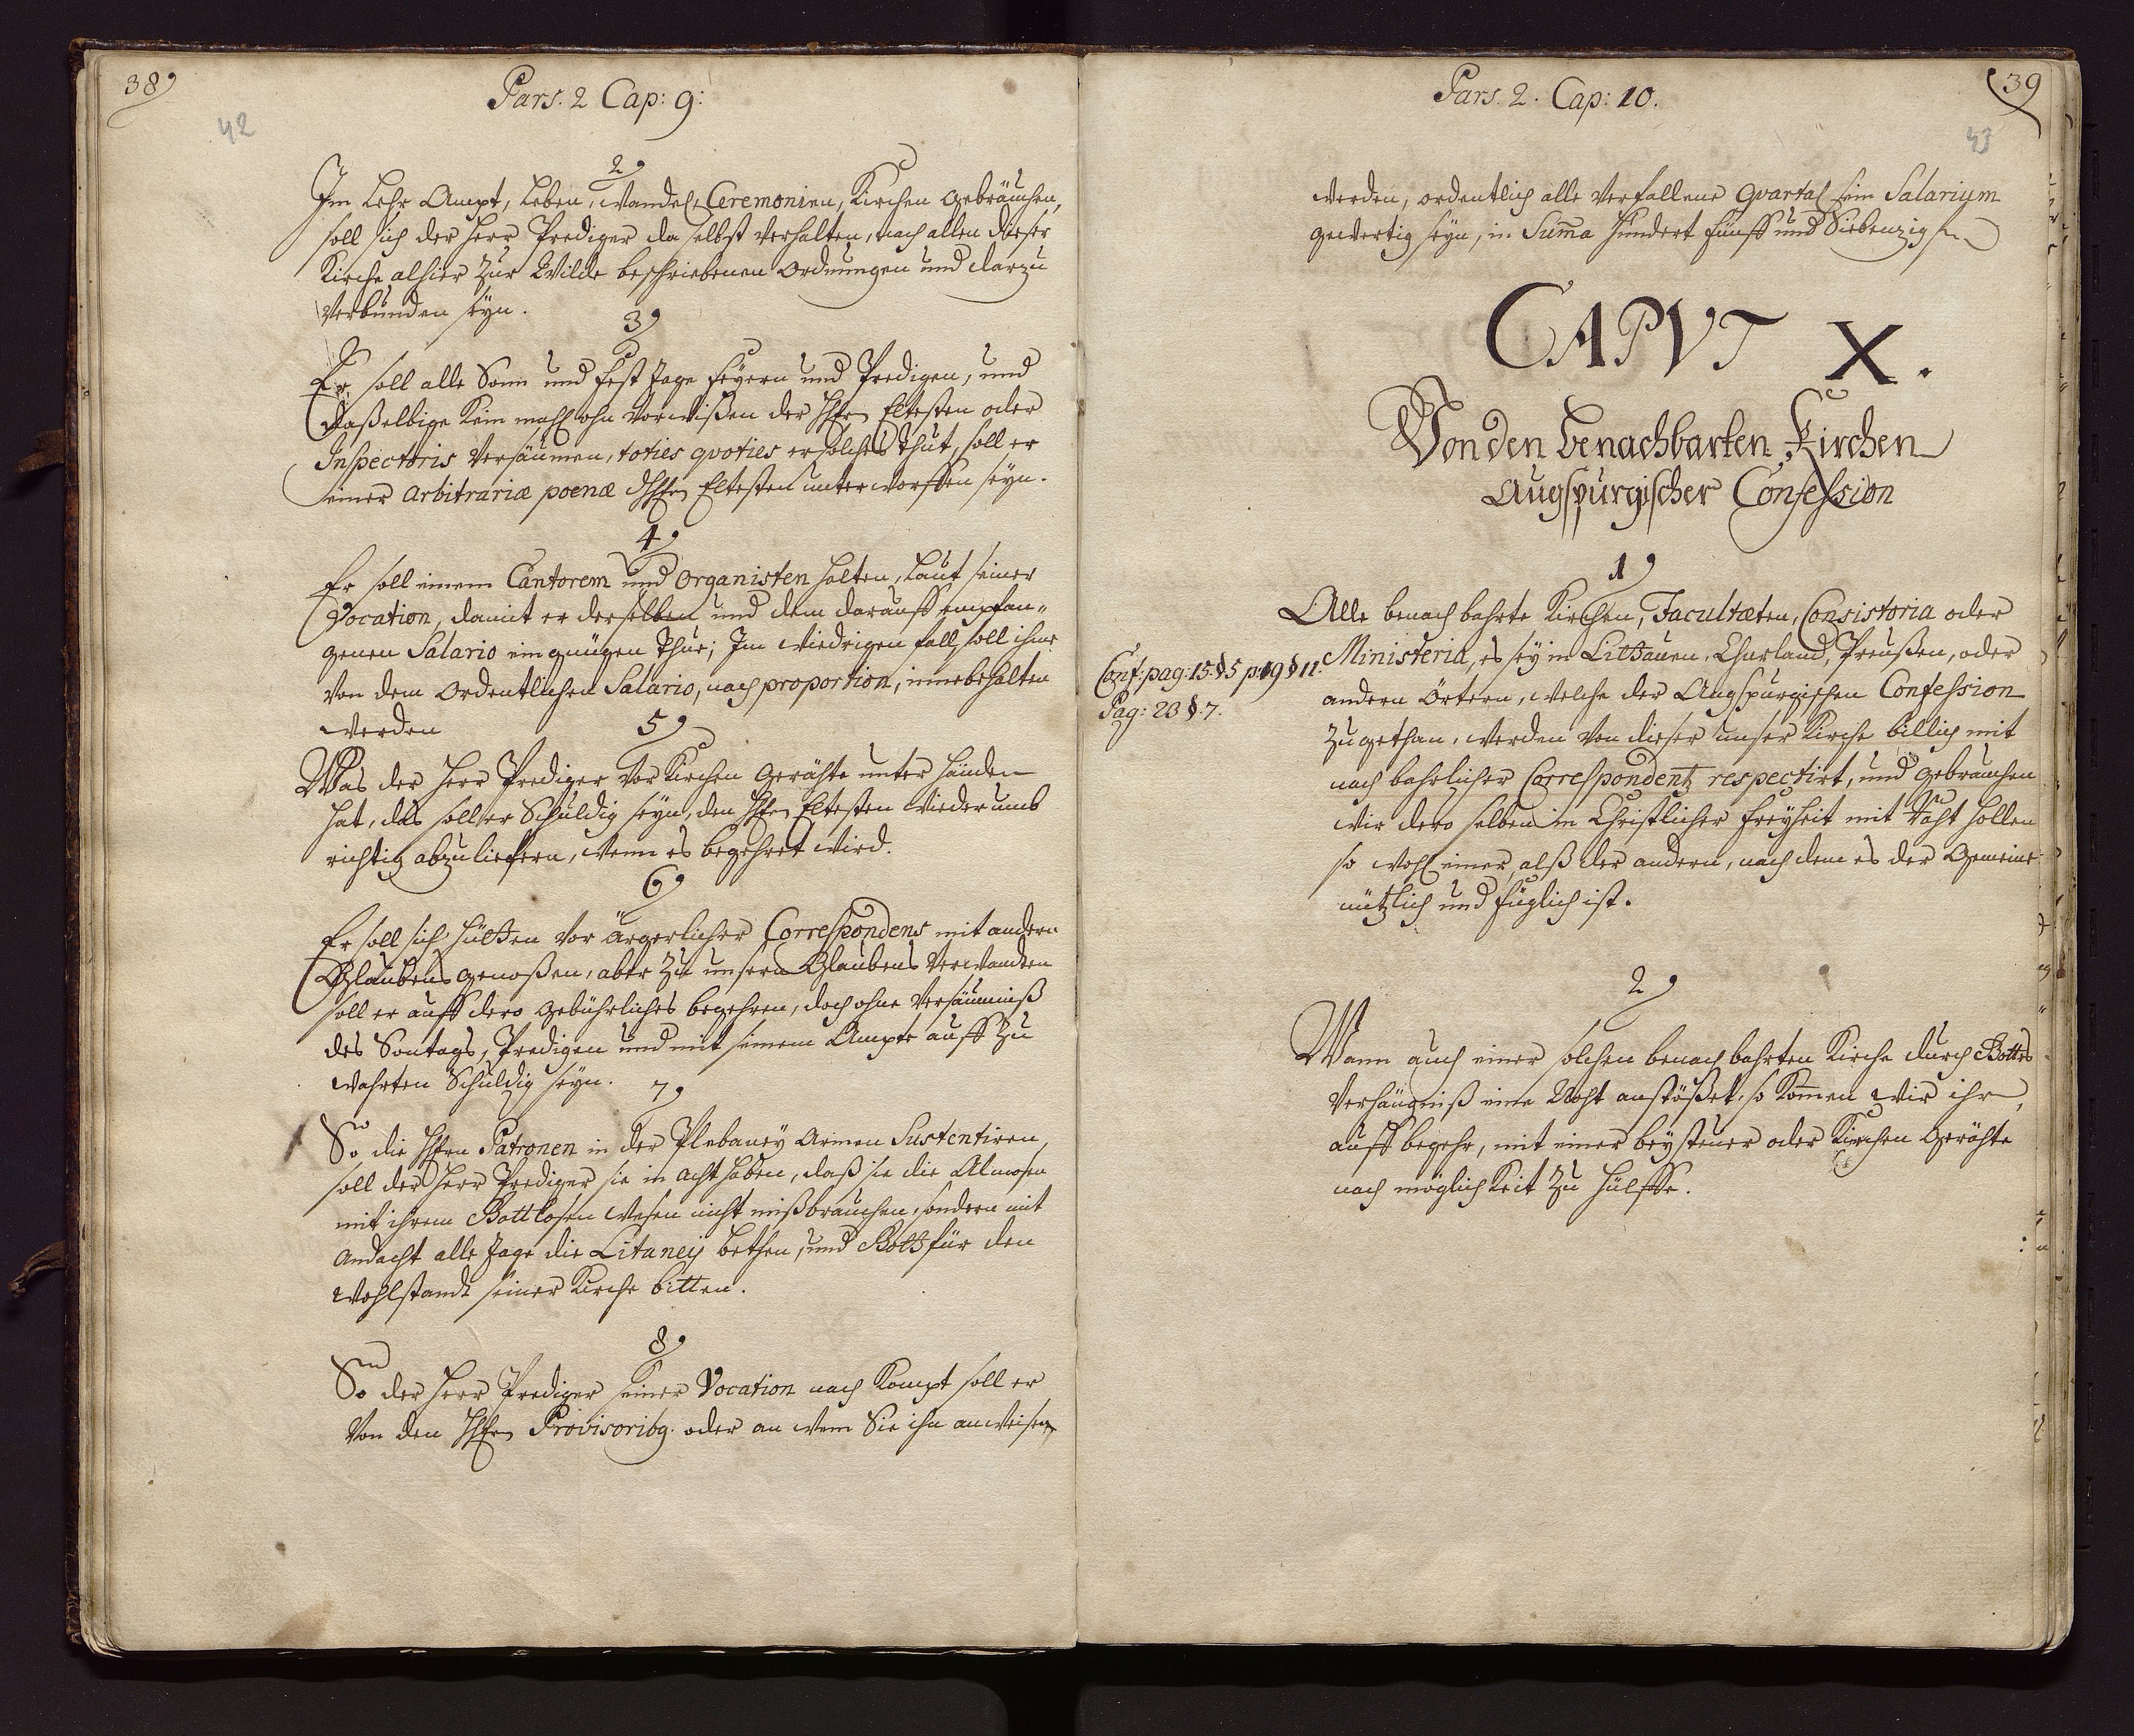 38)
42
Pars. 2 Cap: 9:
2)
Im Lehr Ampt, Leben, Wandel, Ceremonien, Kirchen gebräuchen,
soll sich der Herr Prediger da selbst verhalten, nach allen dieser
Kirche alhier zur Wilde beschriebenen ordnungen und darzu
verbunden seyn.
3)
Er soll alle Sonn und Fest Tage feyern und Predigen, und
daßelbige kein mahl ohn vorwißen der HHrn Eltesten oder
Inspectoris versäumen, toties qvoties er solches thut, soll er
einer arbitrariæ poenæ dHHrn Eltesten unterworffen seyn.
4)
Er soll einem Cantorem und Organisten halten, laut seiner
Vocation, damit er derselben und dem darauff empfan„
genen Salario ein gnügen thue; Im wiedrigen fall soll ihme
von dem ordentlichen Salario, nach proportion, innebehalten
werden
5)
Was der Herr Prediger vor Kirchen geräthe unter händen
hat, das soll er schuldig seyn, den HHrn Eltesten wiederumb
richtig abzuliefern, wenn es begehret wird.
6)
Er soll sich hütten vor ärgerlicher Correspondens mit andern
Glaubens genoßen, aber zu unsern Glaubens verwandten
soll er auff dero gebührliches begehren, doch ohne versäumniß
des Sontags, Predigen und mit seinem Ampte auff zu
wahrten schuldig seyn.
7)
So die HHrn Patronen in der Plebaney Armen Sustentiren,
soll der Herr Prediger sie in acht haben, daß sie die Almosen
mit ihrem Gottlosen wesen nicht mißbrauchen, sondern mit
andacht alle Tage die Litaney bethen, und Gott für den
wohlstandt seiner Kirche bitten.
8)
So der Herr Prediger seiner Vocation nach kompt soll er
von den HHrn Provisoribq. oder an wem Sie ihn anweisen
Pars. 2. Cap: 10.
(39
43
werden, ordentlich alle verfallene Qvartal sein Salarium
gewertig seyn, in Suma hundert fünff und Siebenzig
CAPVT X.
Von den benachbarten Kirchen
Augspurgischer Confession
1)
Alle benachbahrte Kirchen, Facultæten, Consistoria oder
Conf: pag: 15. § 5 p: 19 § 11.
Pag: 23 §. 7.
Ministeria, es sey in Litthauen, Churland, Preußen, oder
andern örtern, welche der Augspurgischen Confession
zugethan, werden von dieser unser Kirche billich mit
nach bahrlicher Correspondentz respectirt, und gebrauchen
wir dero selben in Christlicher freyheit mit Raht hollen
so wohl einer, alß der andern, nach dem es der Gemeine
nützlich und füglich ist.
2)
Wann auch einer solchen benach bahrten Kirche durch Gottes
verhängniß eine Noht anstößet, so komen wir ihr,
auff begehr, mit einer beysteuer oder Kirchen geräthe
nach möglichkeit zu hülffe.